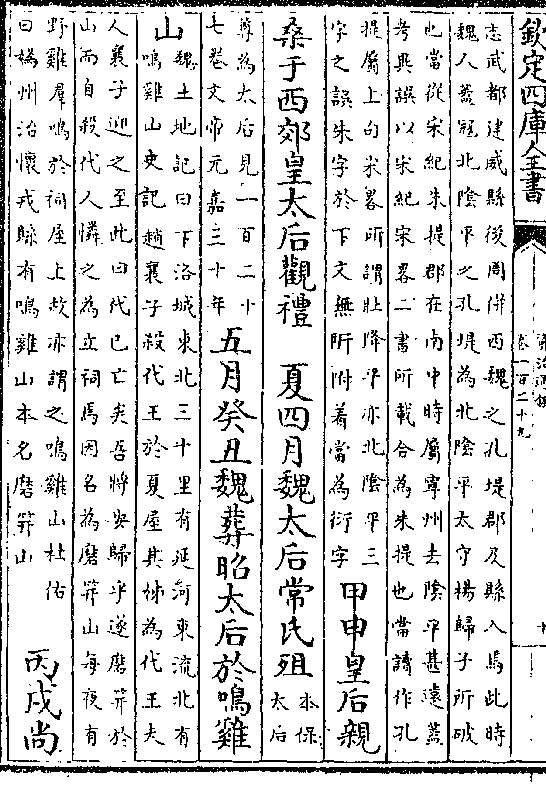 欽定四庫全書
資治通鑑
卷一百二十九
十
志武都建威縣後周併西魏之孔堤郡及縣入焉此時
魏人蓋冦北陰平之孔堤為北陰平太守楊歸子所破
也當從宋紀朱提郡在南中時屬寧州去陰平甚遠蓋
考異誤以宋紀宋畧二書所載合為朱提也當讀作孔
提屬上句宋畧所謂壯降平亦北陰平三
字之誤朱字於下文無所附着當為衍字
甲申皇后親
桑于西郊皇太后觀禮　夏四月魏太后常氏殂
本保
太后
尊為太后見一百二十
七卷文帝元嘉三十年
五月癸丑魏葬昭太后於鳴雞
山
魏土地記曰下洛城東北三十里有延河東流北有
鳴雞山史記趙襄子殺代王於夏屋其姊為代王夫
人襄子迎之至此曰代已亡矣吾將安歸乎遂磨笄於
山而自殺代人憐之為立祠焉因名為磨笄山每夜有
野雞羣鳴於祠屋上故亦謂之鳴雞山杜佑
曰媯州治懷戎縣有鳴雞山本名磨笄山
丙戌尚